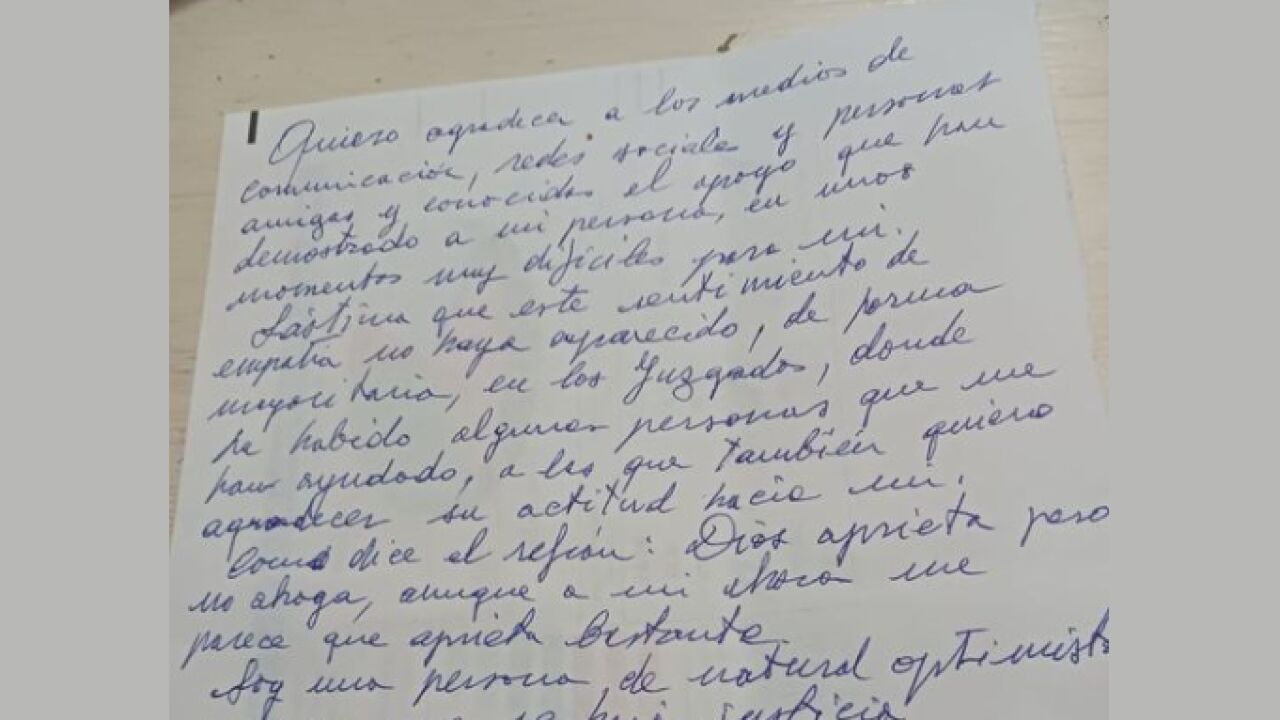 Quiero agradecer a los medios de
comunicación, redes sociales y personas
amigas y conocidas el apoyo que han
demostrado a mi persona, en unos
momentos muy difíciles para mi.
Lástima que este sentimiento de
empatía no haya aparecido, de forma
mayoritaria, en los Juzgados, donde
ha habido algunas personas que me
han ayudado, a las que también quiero
agradecer su actitud hacia mi.
Como dice el refrán: Dios aprieta pero
no ahoga, aunque a mi ahora me
parece que aprieta bastante.
Soy una persona, de natural optimista
justicia